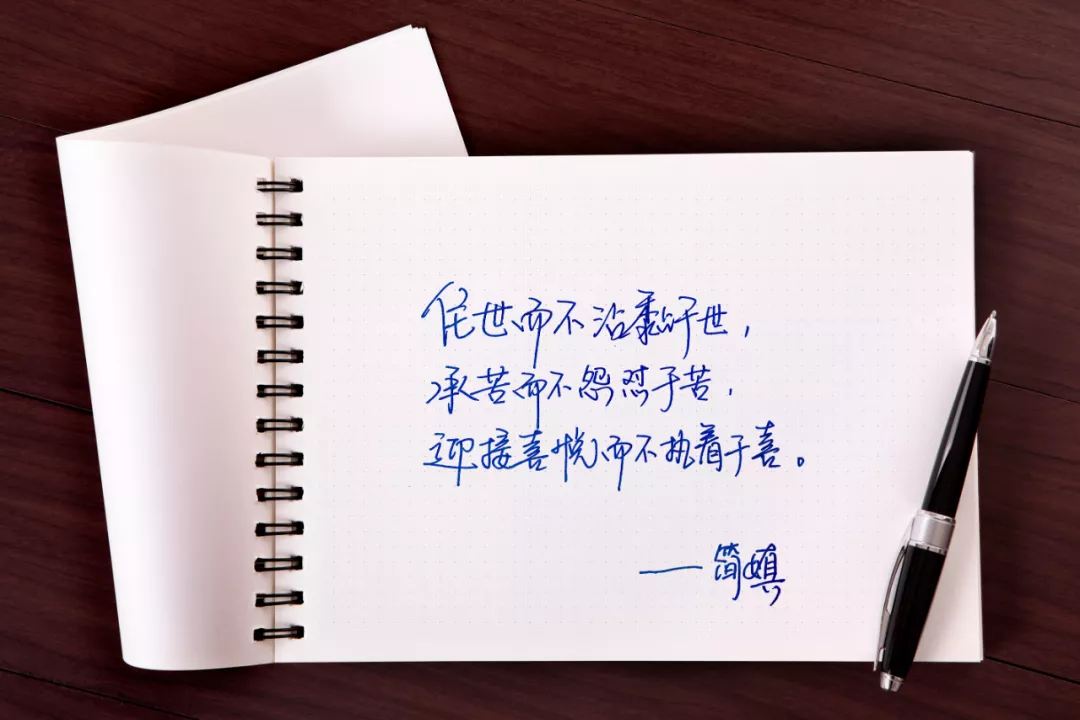 住世而不沾黏于世，
承苦而不怨怼于苦，
迎接喜悦而不执着于喜。
——简媜